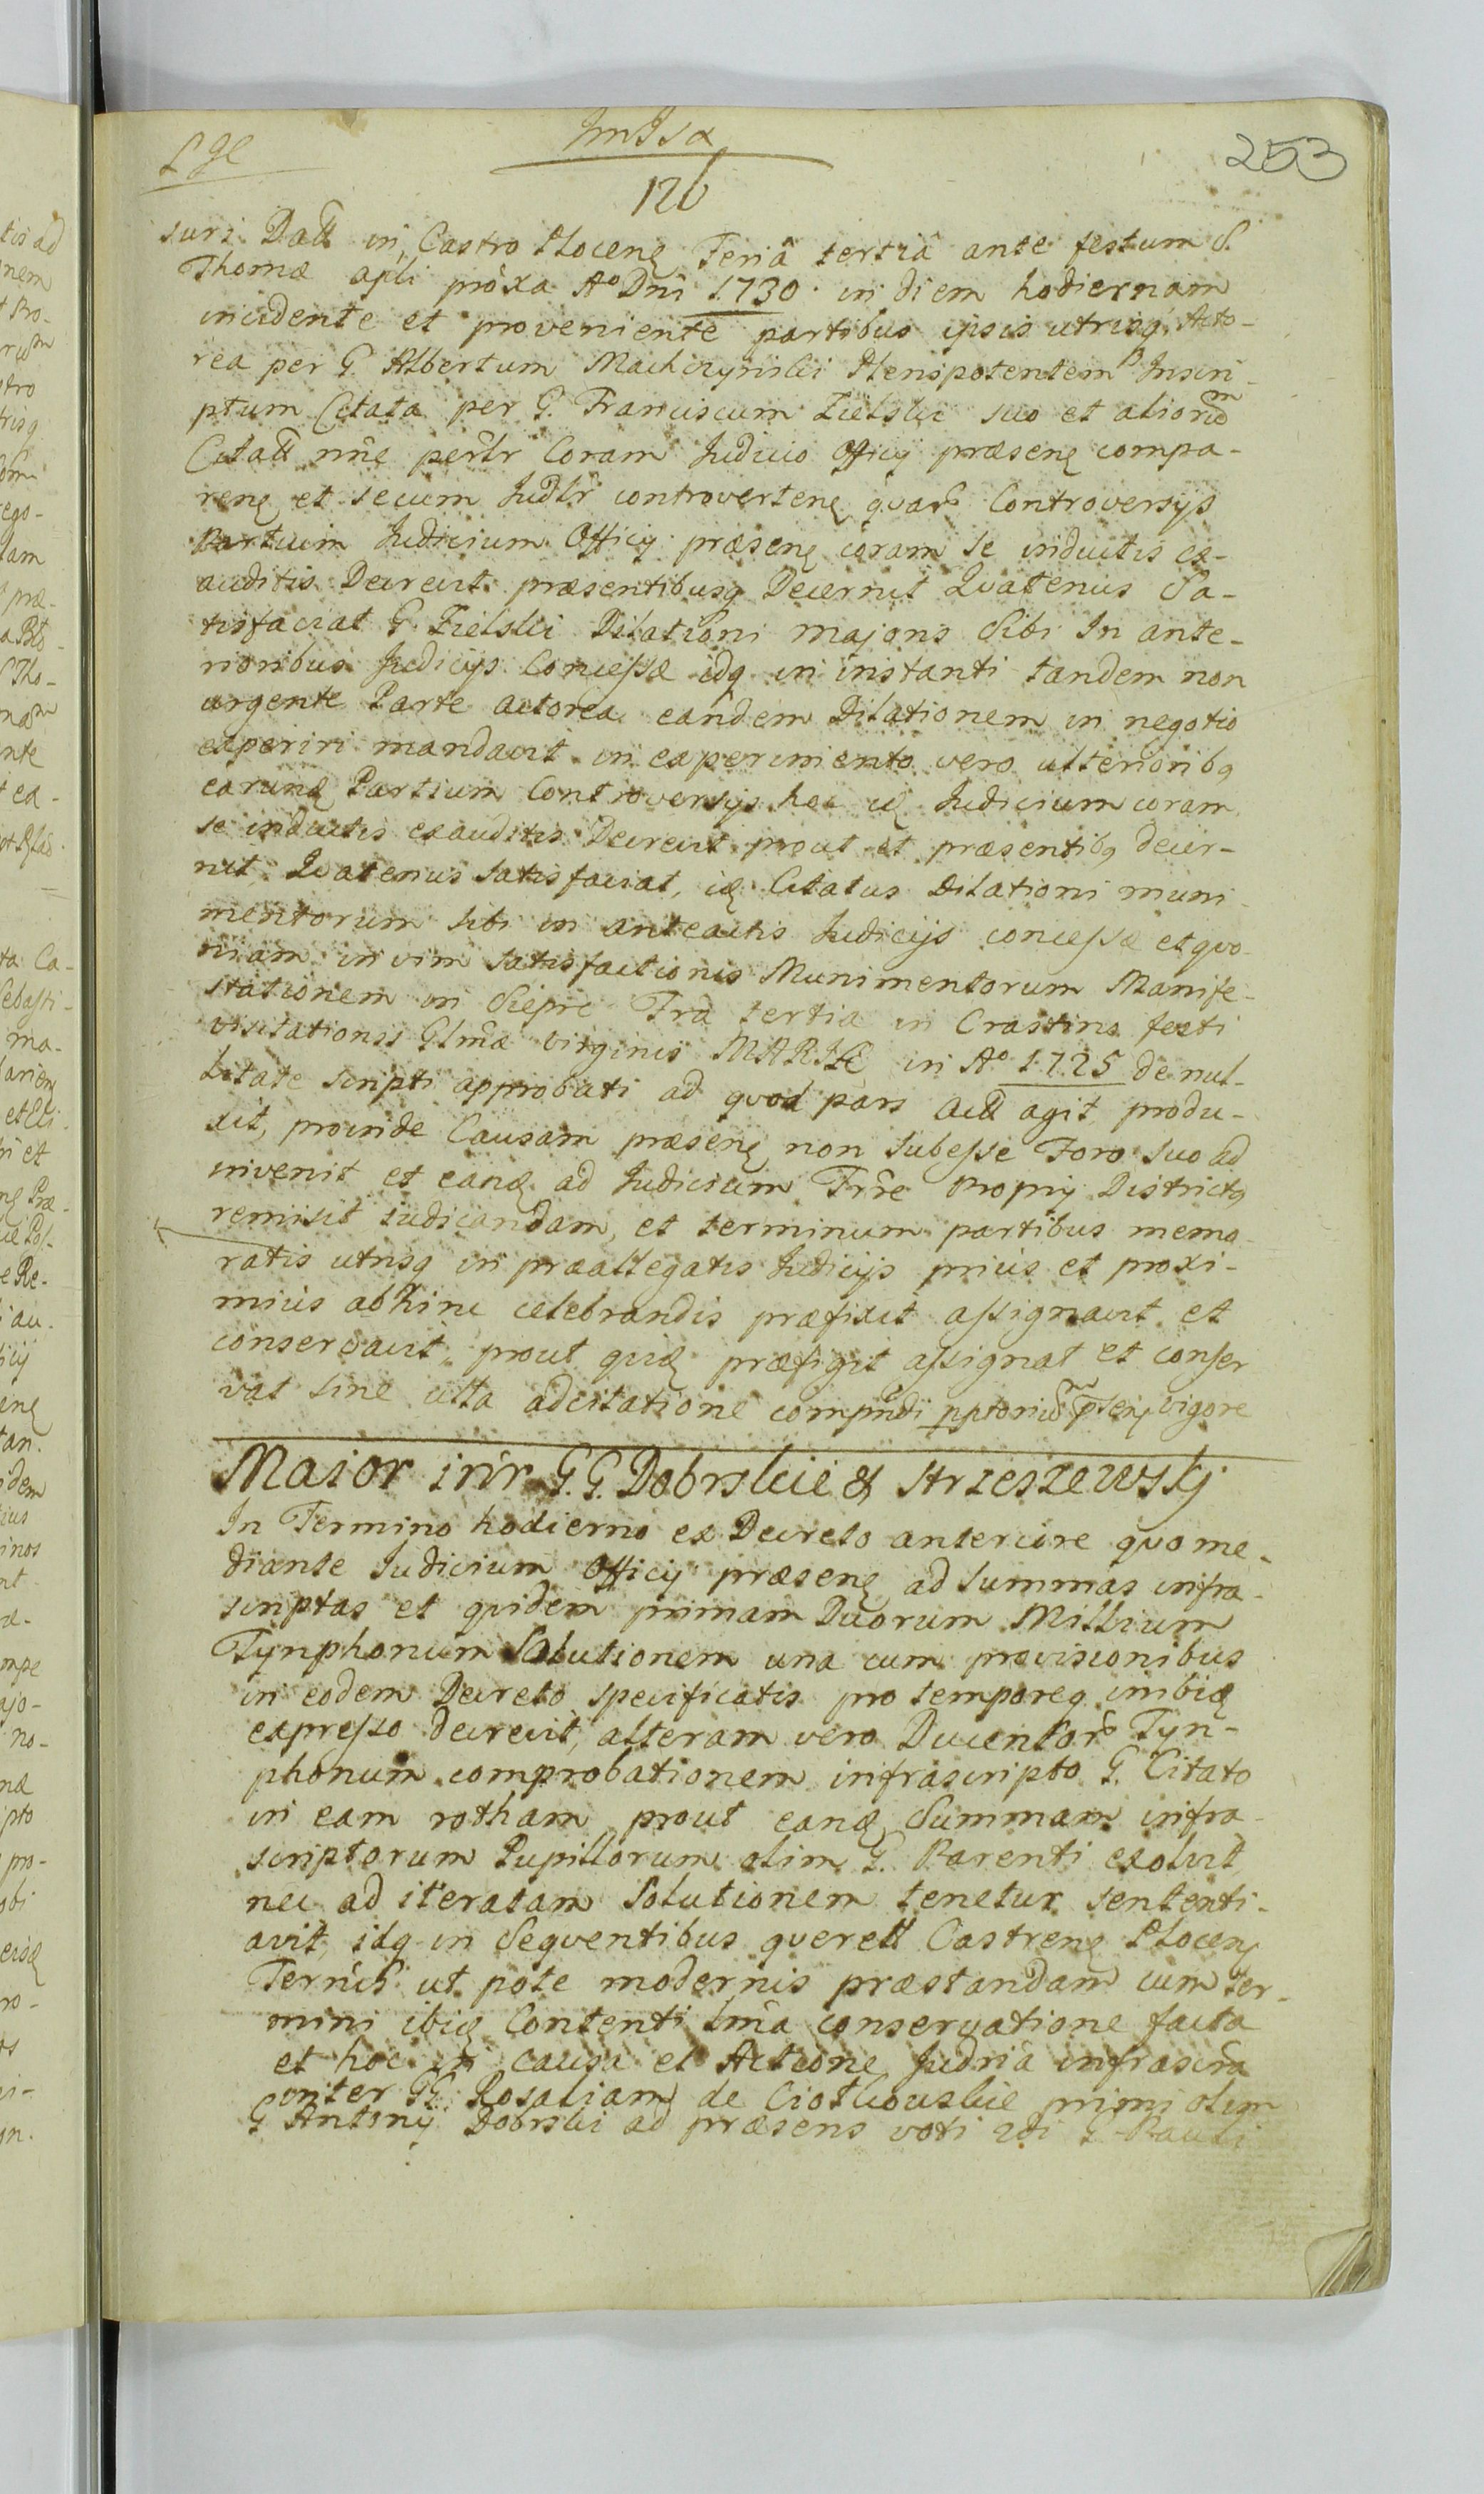 253
126
suri Datt in Castro Plocen Feriâ tertiâ ante festum S.
Thomæ apli proxa Aº Dni 1730 in diem hodiernam
incidente et proveniente partibus ipsis utrisq Acto-
rea per G. Albertum Machczynski Plenipotentem Inscri-
ptum Citata per G. Franciscum Zielski suo et aliorum
Citatt nne perlr Coram Judicio Officij præsen compa-
ren et secum Judlr controverten quar Controversijs
Partium Judicium Officij præsen coram se inductis ex-
auditis Decrevit præsentibusq Decernit Quatenus Sa-
tisfaciat G. Zielski Dilationi majoris Sibi In ante-
rioribus Judicijs Concessæ idq in instanti tandem non
urgente Parte actorea eandem Dilationem in negotio
experiri mandavit in experimento vero ulterioribq
earund Partium Controversijs hoc id Judicium coram
se inductis exauditis Decrevit prout et præsentibq decer-
nit, Quatenus satisfaciat, id Citatus Dilationi muni-
mentorum sibi in anteactis Judicijs concessæ et quo-
niam in vim satisfactionis Munimentorum Manife-
stationem in Siepre Fra tertia in Crastino festi
visitationis Glmæ virginis MARIÆ in Aº 1725 de nul-
litate scripti approbati ad quod pars Actt agit, produ-
xit, proinde Causam præsen non subesse Foro suo ad
invenit et eand ad Judicium Frre proprij Districtq
remisit iudicandam, et terminum partibus memo-
ratis utrisq in præallegatis Judicijs prius et proxi-
mius abhinc celebrandis præfixit assignavit et
conservavit, prout quid præfigit assignat et conser
vat sine ulla adcitatione vigore
Maior inr G.G. Dobrskie & Strzeszewskj
In Termino hodierno ex Decreto antercire quo me-
diante Judicium Officij præsen ad summas infra-
scriptas et quidem primam Duorum Millium
Tynphonum Solutionem una cum provisionibus
in eodem Decreto specificatis pro temporeq inibid
expresso decrevit, alteram vero Ducentor Tyn-
phonum comprobationem infrascripto G. Citato
in eam rotham prout eand Summam infra-
scriptorum Pupillorum olim G. Parenti exolvit
nec ad iteratam Solutionem tenetur sententi-
avit, idq in Sequentibus querell Castren Plocen
Ternis ut pote modernis præstandam cum ter-
mini ibid Contenti lma conservatione facta
et hoc in causa et Actione Judria infrascra
inter GG. Rosaliam de Ciotkouskie primi olim
G Antonij Dobrski ad præsens voti 2di G Pauli